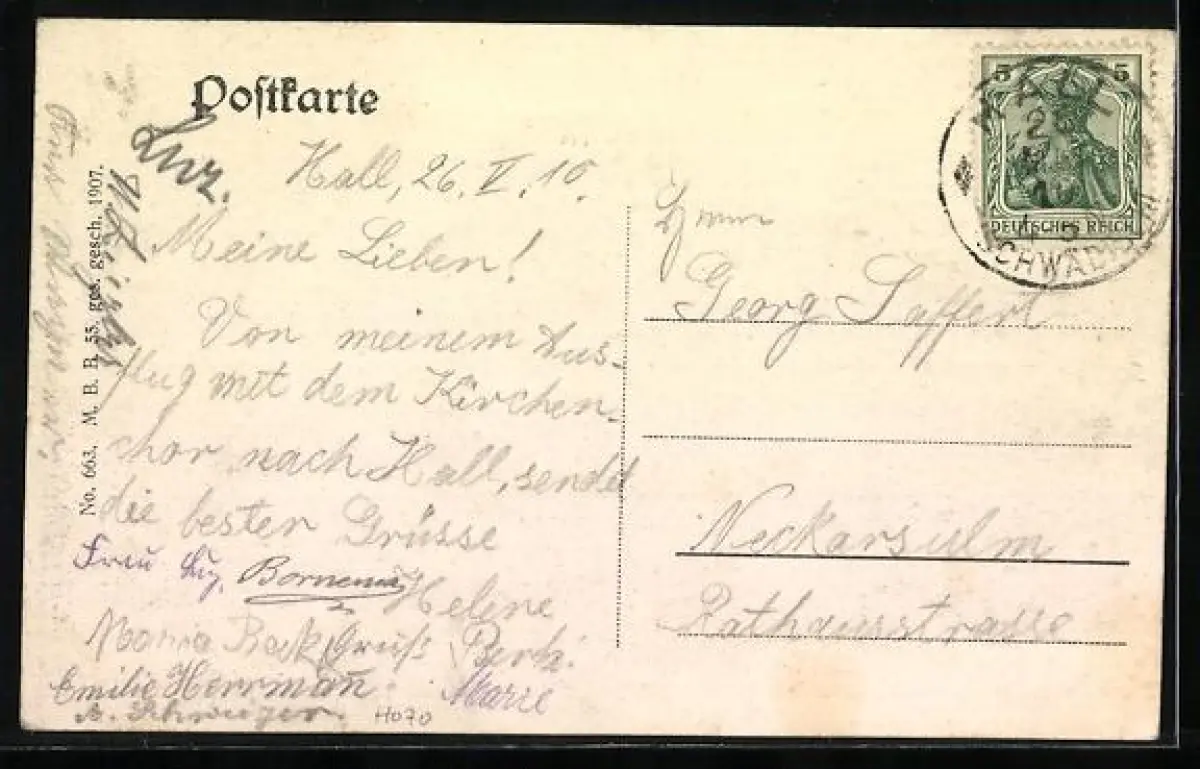 Postkarte
Hall, 26. V. 10.
Meine Lieben!
Von meinem Aus-
flug mit dem Kirchen-
chor nach Hall, sendet
die besten Grüsse
Helene
Frau
Maria
Emilie Herrman
Marie
H070
No. 663. M. B. B. 55. ges. gesch. 1907.
5 5
DEUTSCHES REICH
HALL
SCHWÄB
Georg Saffert
Neckarsulm
Rathausstrasse